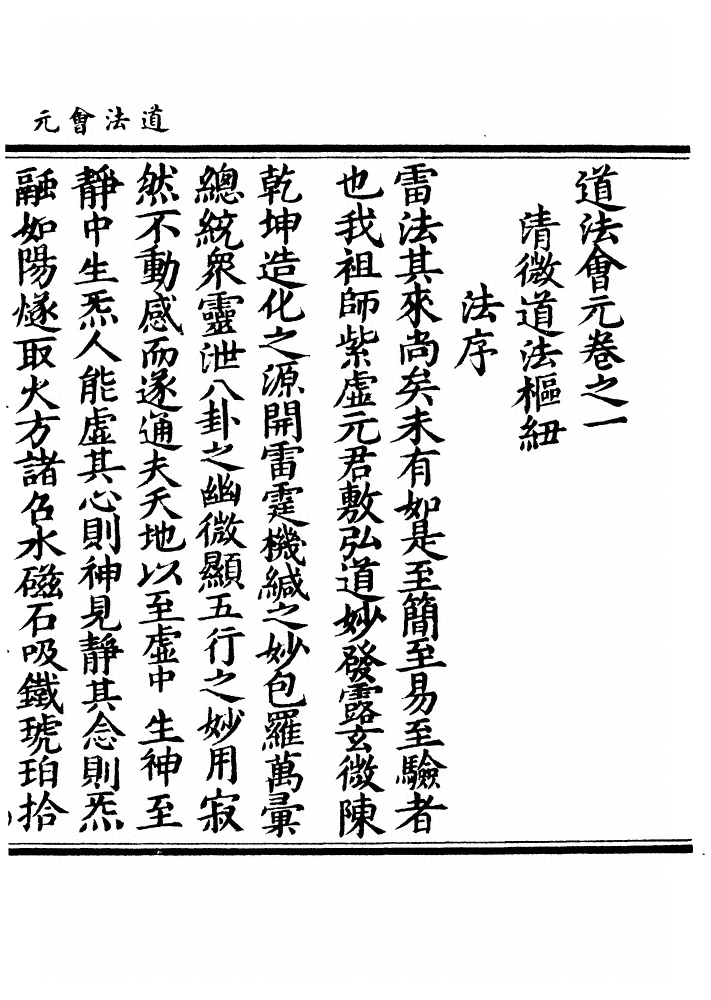 道法會元
道法會元卷之一
清微道法樞紐
法序
雷法其來尚矣未有如是至簡至易至驗者
也我祖師紫虛元君敷弘道妙發露玄微陳
乾坤造化之源開雷霆機緘之妙包羅萬彙
總統眾靈泄八卦之幽微顯五行之妙用寂
然不動感而遂通夫天地以至虛中生神至
靜中生炁人能虛其心則神見靜其念則炁
融如陽燧取火方諸召水磁石吸鐵琥珀拾